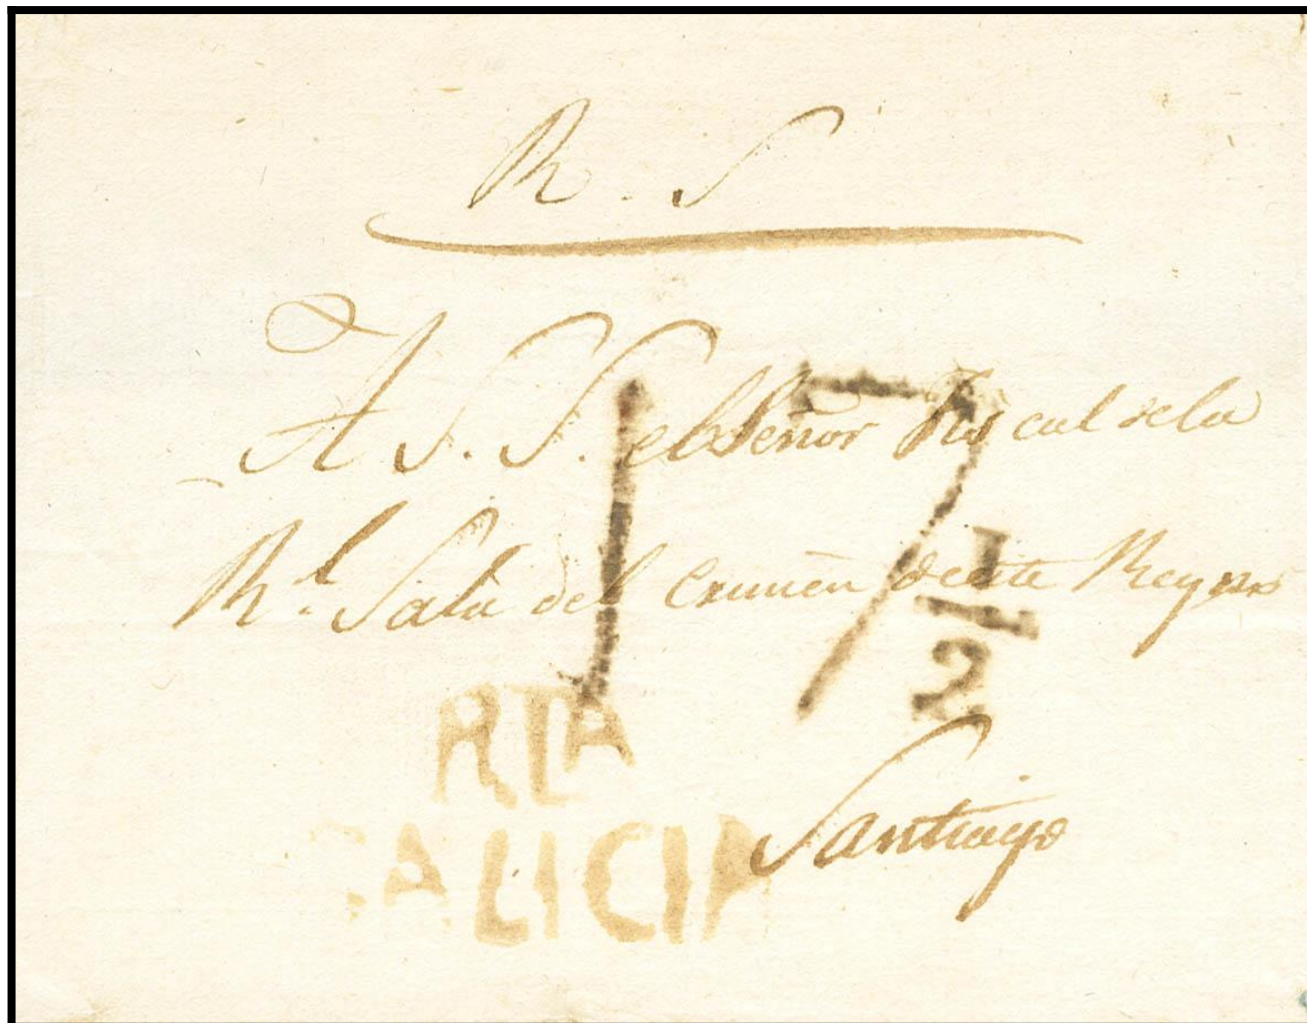 R. S
A S. S. el Señor Fiscal dela
Rl. Sala del Crimen deeste Reyno
17 1/2
RTA
GALICIA
Santiago